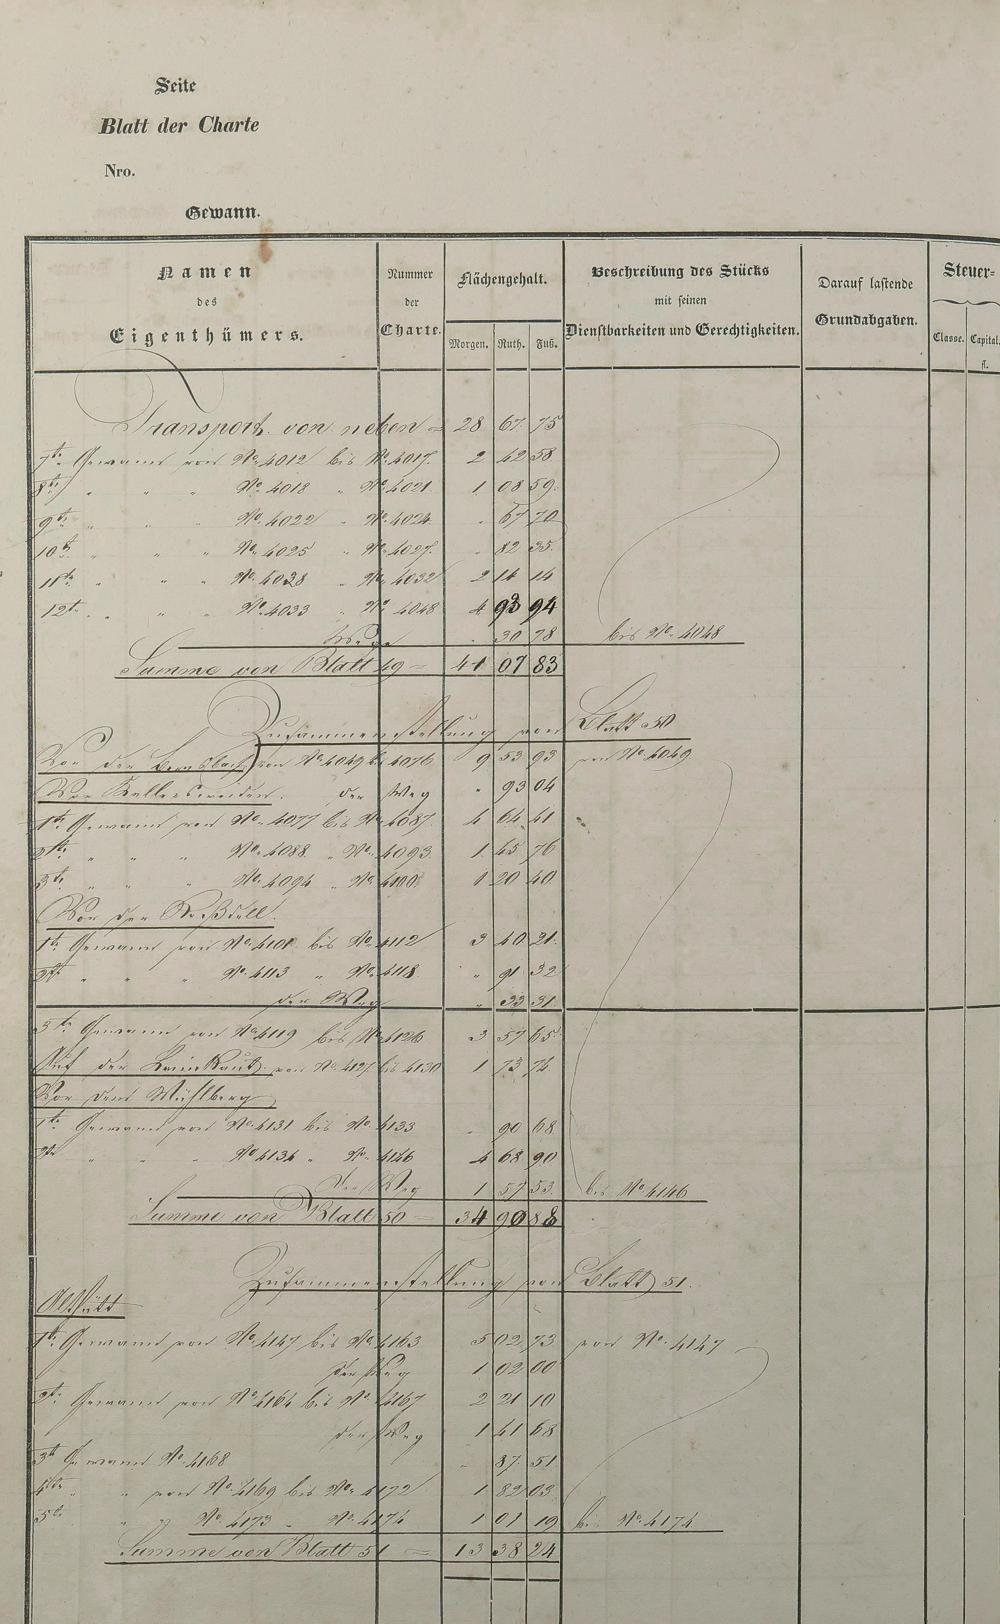 Seite
Blatt der Charte
Nro.
Gewann.
Namen des Eigenthümers.
Nummer der Charte.
Flächengehalt.
Morgen. Ruth. Fuß.
Beschreibung des Stücks mit seinen Dienstbarkeiten und Gerechtigkeiten.
Darauf lastende Grundabgaben.
Steuer-
Classe. Capital.
fl.
Transport von neben = 28 67 75
7te Gewann von No. 4012 bis No. 4017. 2 42 58
8te " " " No. 4018 " No. 4021 1 08 59
9te " " " No. 4022 " No. 4024 " 67 70
10te " " " No. 4025 " No. 4027. " 82 35
11te " " " No. 4028 " No. 4032 2 14 14
12te " " " No. 4033 " No. 4048 4 93 94
Wege " 30 78 bis No. 4048
Summe von Blatt 49 = 41 07 83
Zusammenstellung von Blatt 50
Vor der von No. 4049 bis 4076 9 53 93 von No. 4049
Vor der Weg " 93 04
1te Gewann von No. 4077 bis No. 4087. 4 64 41
2te " " " No. 4088 " No. 4093 1 45 76
3te " " " No. 4094 " No. 4100 1 20 40
Vor der
1te Gewann von No. 4101 bis No. 4112 3 40 21
2te " " " No. 4113 " No. 4118 " 91 32
der Weg " 33 31
3te Gewann von No. 4119 bis No. 4126 3 57 65
Auf der von No. 4127 bis 4130 1 73 74
Vor dem Mühlberg
1te Gewann von No. 4131 bis No. 4133 " 90 68
2te " " " No. 4134 " No. 4146 4 68 90
der Weg 1 57 53 bis No. 4146
Summe von Blatt 50 = 34 90 88
Zusammenstellung von Blatt 51.
1te Gewann von No. 4147 bis No. 4163 5 02 73 von No. 4147
der Weg 1 02 00
2te Gewann von No. 4164 bis No. 4167 2 21 10
der Weg 1 41 68
3te Gewann No. 4168 " 87 51
4te " " von No. 4169 bis No. 4172 1 82 03
5te " " No. 4173 " No. 4174 1 01 19 bis No. 4174
Summe von Blatt 51 = 13 38 24